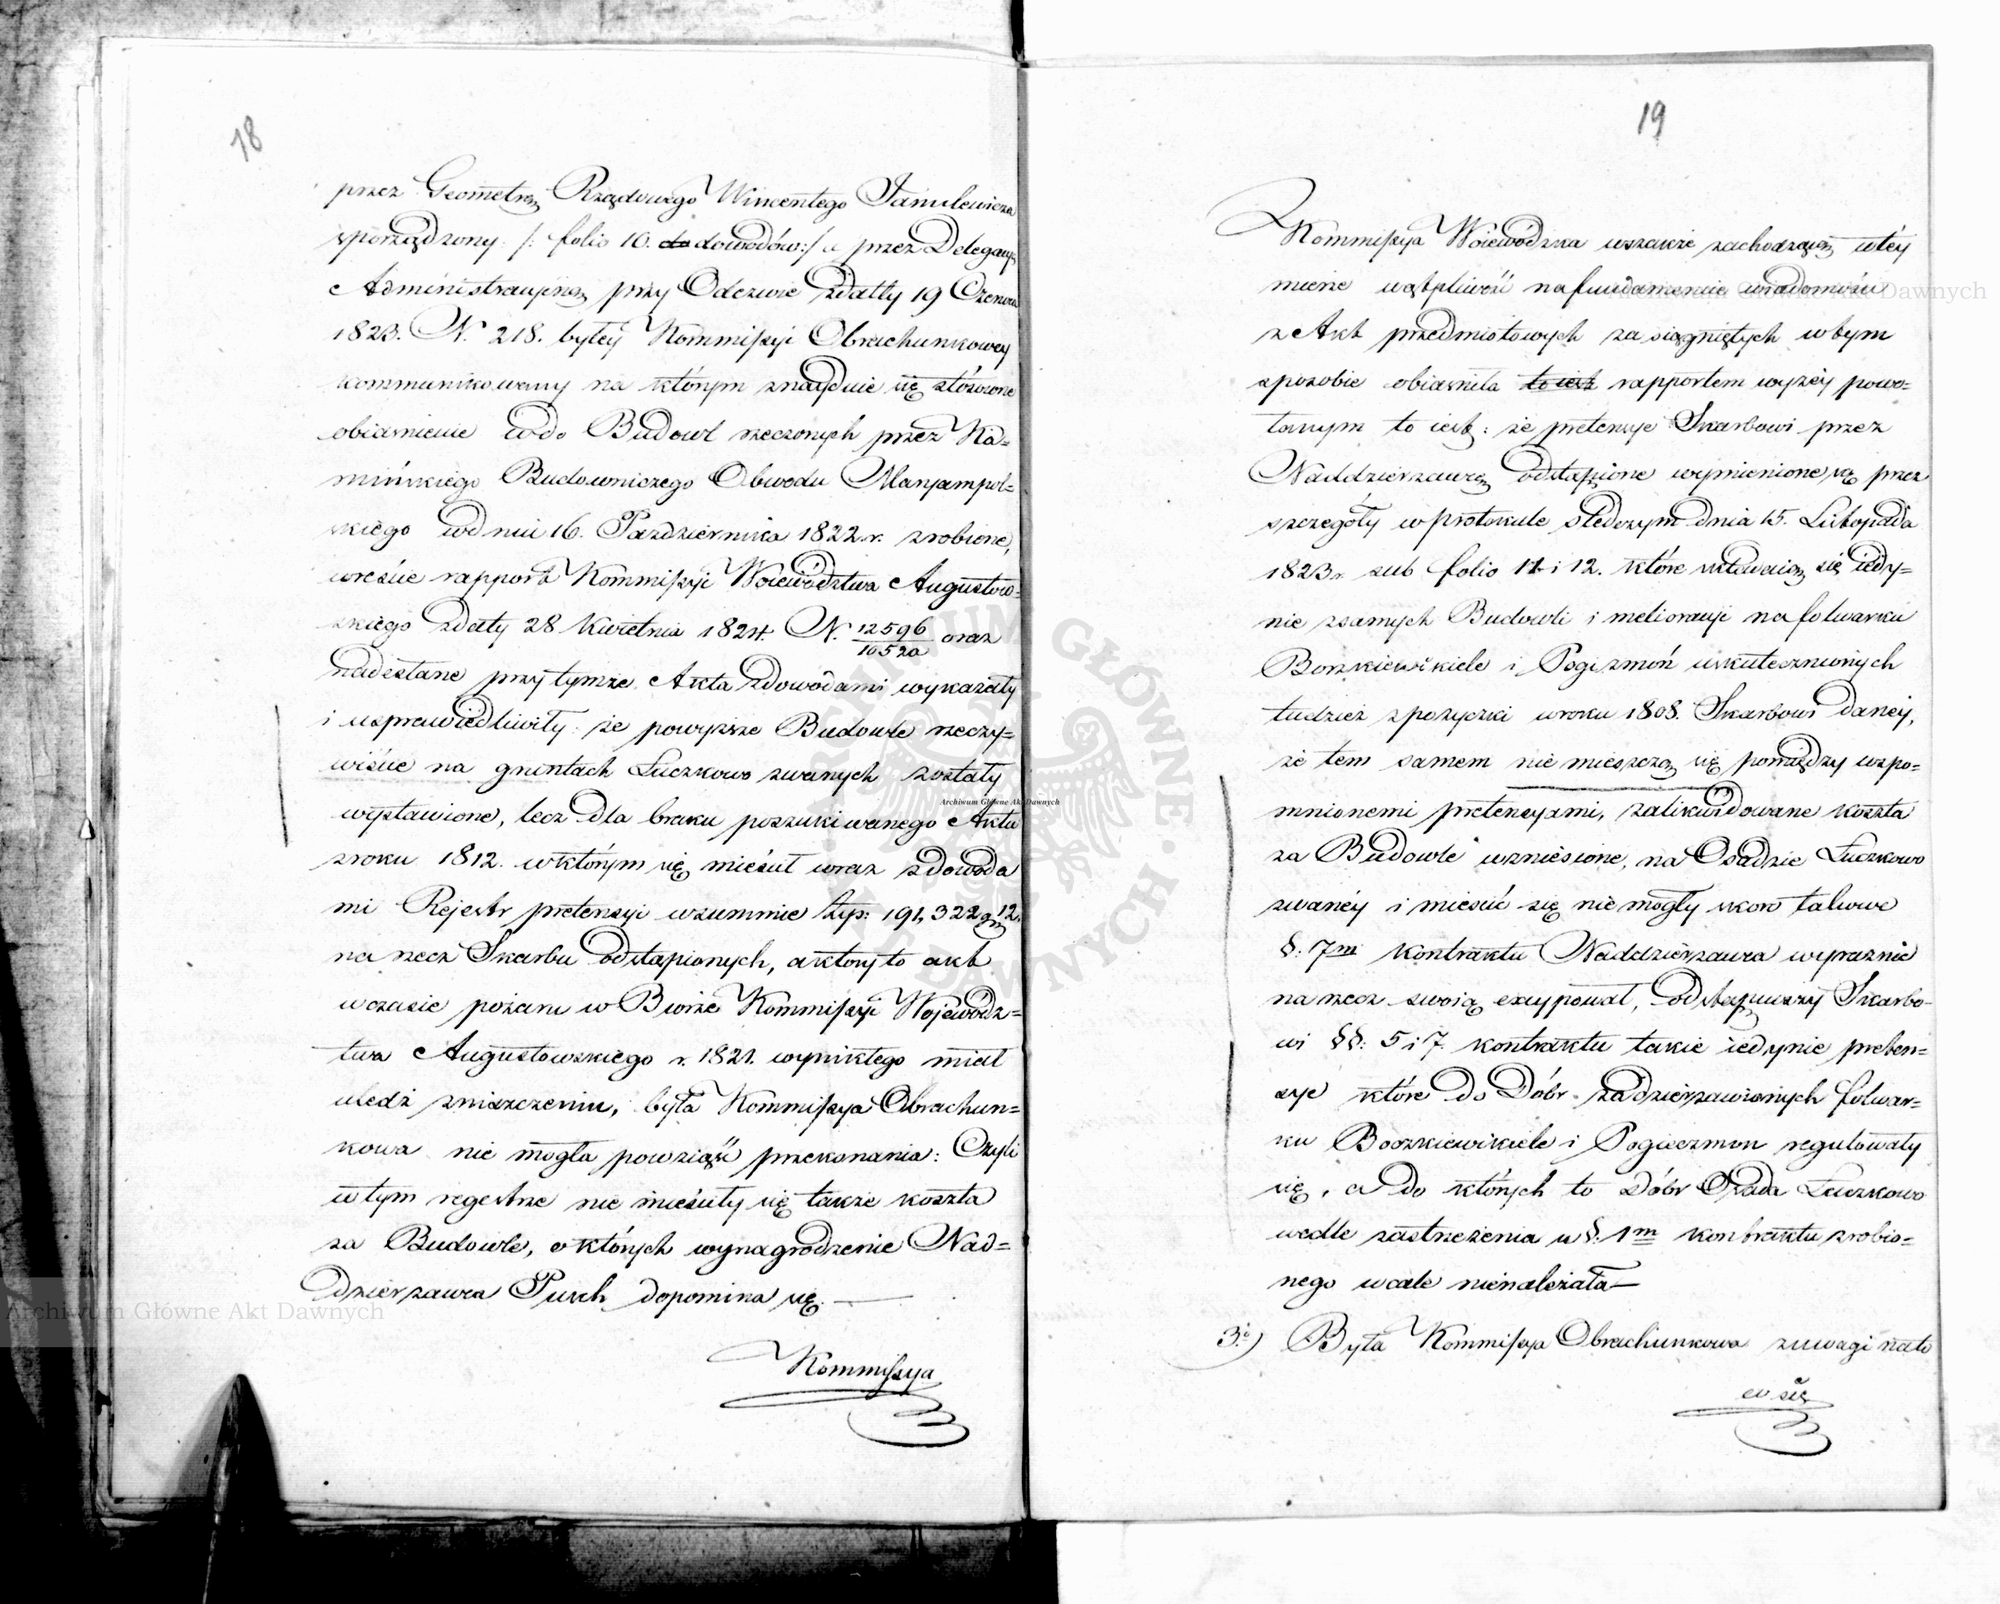 18
przez Geometrę Rządowego Wincentego Janulewicza
sporządzony /: folio 10. dowodów:/ a przez Delegacyą
Administracyiną przy Odezwie zdatty 19 Czerwca
1823. N. 218. byłey Kommissyi Obrachunkowey
kommunikowany na którym znayduie się złożone
obiaśnienie wdo Budowl rzeczonych przez Ka=
mińskiego Budowniczego Obwodu Maryampol=
skiego wdniu 16. Października 1822 r. zrobione,
wreście rapport Kommissyi Woiewództwa Augustow=
skiego zdatty 28 Kwietnia 1824. N. 12596/10520 oraz
nadesłane przy tymże Akta zdowodami wykazały
i usprawiedliwiły że powyższe Budowle rzeczy=
wiście na gruntach Łuczkowo zwanych zostały
wystawione, lecz dla braku poszukiwanego Aktu
zroku 1812. wktórym się mieścił wraz zdowoda
mi Rejestr pretensyi wsummie Złp: 191,322 gr 12.
na rzecz Skarbu odstąpionych, aktóry to akt
wczasie pożaru w Biurze Kommissyi Wojewódz=
twa Augustowskiego r. 1821. wynikłego miał
uledz zniszczeniu, była Kommissya Obrachun=
kowa nie mogła powziąść przekonania: Czyli
wtym regestrze nie mieściły się także koszta
za Budowle, o których wynagrodzenie Nad=
dzierzawca Pusch dopomina się. —
Kommissya
19
Kommissya Woiewódzka wszakże zachodzącą wtéy
mierze wątpliwość na fundamencie wiadomości
z Akt przedmiotowych zasiągniętych wtym
sposobie obiaśniła to iest rapportem wyżéy powo=
łanym to iest: że pretensye Skarbowi przez
Naddzierzawcę odstąpione wymienione są przez
szczegóły w protokule śledczym dnia 15. Listopada
1823 r. sub folio 11 i 12. które składaią się iedy=
nie zsamych Budowli i melioracyi na folwarku
Borzkiewiszkiele i Pogizmoń uskutecznionych
tudzież zpożyczki wroku 1808. Skarbowi daney,
że tem samem nie mieszczą się pomiędzy wspo=
mnionemi pretensyami, zalikwidowane koszta
za Budowle wzniesione, na Osadzie Łuczkowo
zwanéy i mieścić się nie mogły skoro takowe
§. 7m. kontraktu Naddzierzawca wyraznie
na rzecz swoią excypował, odstąpiwszy Skarbo-
wi §§: 5 i 7. kontraktu takie iedynie preten=
sye które do Dóbr zadzierzawionych folwar=
ku Borzkiewiszkiele i Pogizmon regulowały
się, a do których to Dóbr Osada Łuczkowo
wedle zastrzeżenia w §. 1m kontraktu zrobio=
nego wcale nienależała —
3.) Była Kommissya Obrachunkowa zuwagi nato
co się
Archiwum Główne Akt Dawnych